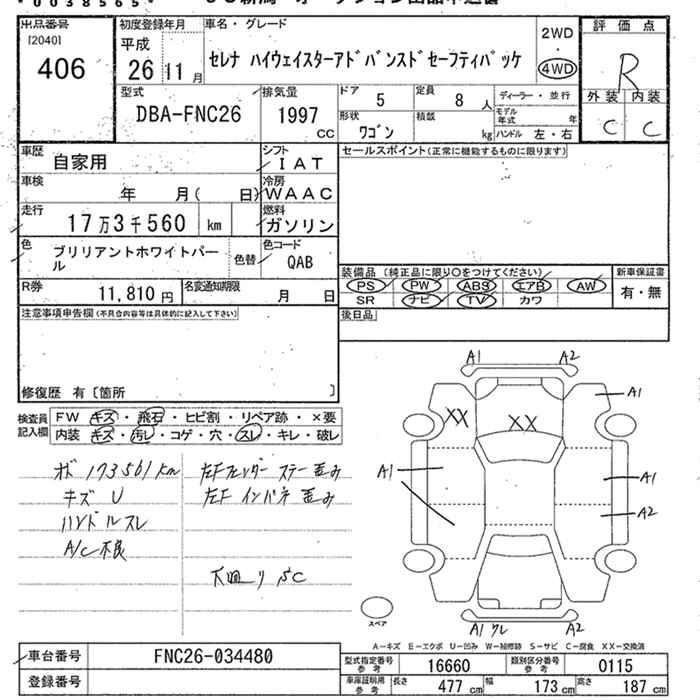 *0038565*
出品番号
[2040]
406
初度登録年月
平成
26 11月
車名・グレード
セレナ ハイウェイスターアドバンスドセーフティパッケ
2WD
・
4WD
評価点
R
外装 内装
C C
型式
DBA-FNC26
排気量
1997
cc
ドア
5
定員
8人
ディーラー・並行
モデル年式 年
形状
ワゴン
積載
kg
ハンドル 左・右
車歴
自家用
シフト
IAT
セールスポイント(正常に機能するものに限ります)
車検
年 月( 日)
冷房
WAAC
走行
17万3千560 km
燃料
ガソリン
色
ブリリアントホワイトパール
色替
色コード
QAB
装備品(純正品に限り○をつけてください)
新車保証書
PS PW ABS エアB AW
有・無
SR ナビ TV カワ
R券
11,810円
名変通知期限
月 日
後日品
注意事項申告欄(不具合内容等は具体的に記入して下さい)
修復歴 有〔箇所 〕
検査員記入欄
FW キズ・飛石・ヒビ割・リペア跡・×要
内装 キズ・汚レ・コゲ・穴・スレ・キレ・破レ
メ 173561km
キズ U
ハンドルスレ
A/C不良
左Fフェンダーステー歪み
左Fインパネ歪み
下廻りSC
A1 A2
A1
XX XX
A1
A1
A2
A1 ワレ A2
スペア
A-キズ E-エクボ U-凹み W-補修跡 S-サビ C-腐食 XX-交換済
車台番号
FNC26-034480
登録番号
型式指定番号 参考
16660
類別区分番号 参考
0115
車庫証明用 参考
長さ 477 cm
幅 173 cm
高さ 187 cm